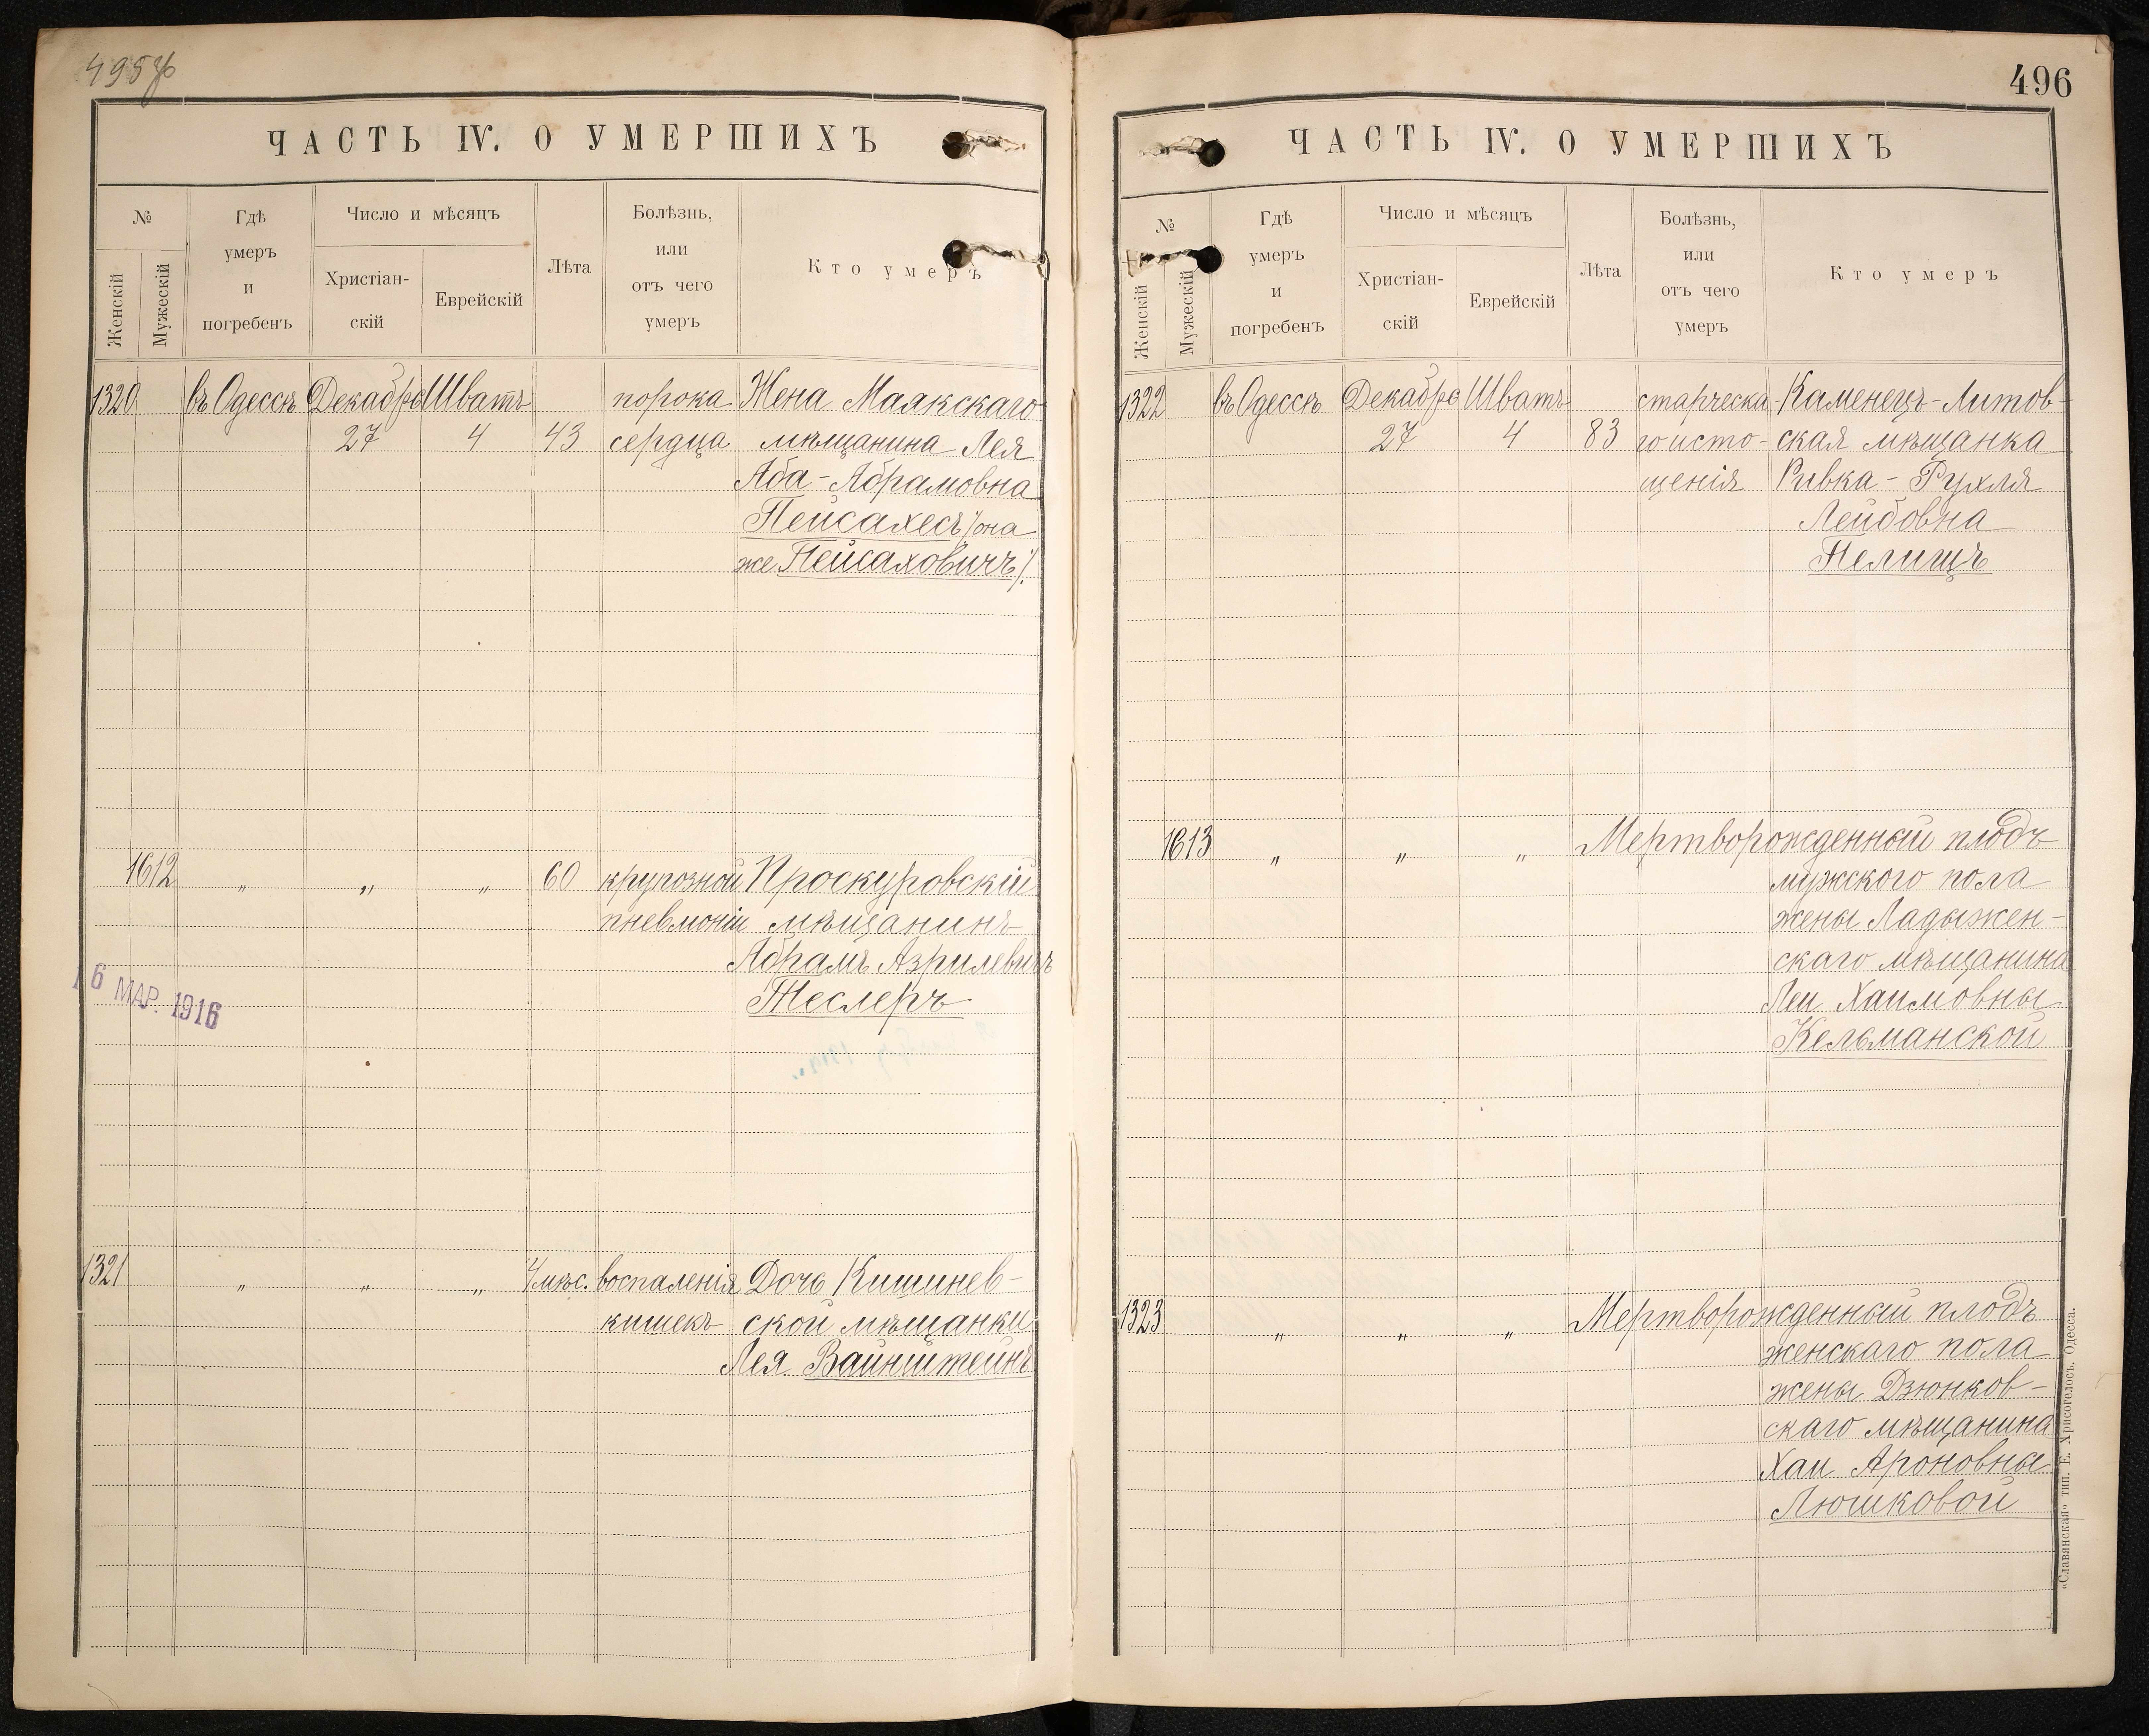 495 об
ЧАСТЬ IV. О УМЕРШИХЪ
№
Женскій
Мужескій
Гдѣ
умеръ
и
погребенъ
Число и мѣсяцъ
Христіан-
скій
Еврейскій
Лѣта
Болѣзнь,
или
отъ чего
умеръ
Кто умеръ
1320 въ Одессѣ Декабрь Шватъ порока Жена Маякскаго
27 4 43 сердца мѣщанина Лея
Аба-Абрамовна
Пейсахесъ /она
же Пейсаховичъ/.
1612 „ „ „ 60 крупозной Проскуровскій
пневмоніи мѣщанинъ
Абрамъ Азрилевичъ
Теслеръ
16 МАР. 1916
1321 „ „ „ 4 мѣс. воспаленія Дочь Кишинев-
кишекъ ской мѣщанки
Лея Вайнштейнъ
496
ЧАСТЬ IV. О УМЕРШИХЪ
№
Женскій
Мужескій
Гдѣ
умеръ
и
погребенъ
Число и мѣсяцъ
Христіан-
скій
Еврейскій
Лѣта
Болѣзнь,
или
отъ чего
умеръ
Кто умеръ
1322 въ Одессѣ Декабрь Шватъ старческа- Каменецъ-Литов-
27 4 83 го исто- ская мѣщанка
щенія Ривка-Рухля
Лейбовна
Пелищъ
1613 „ „ „ Мертворожденный плодъ
мужского пола
жены Ладыжен-
скаго мѣщанина
Леи Хаимовны
Кельманской
1323 „ „ „ Мертворожденный плодъ
женскаго пола
жены Дзюнков-
скаго мѣщанина
Хаи Ароновны
Люшковой
„Славянская“ тип. Е. Хрисогелосъ. Одесса.